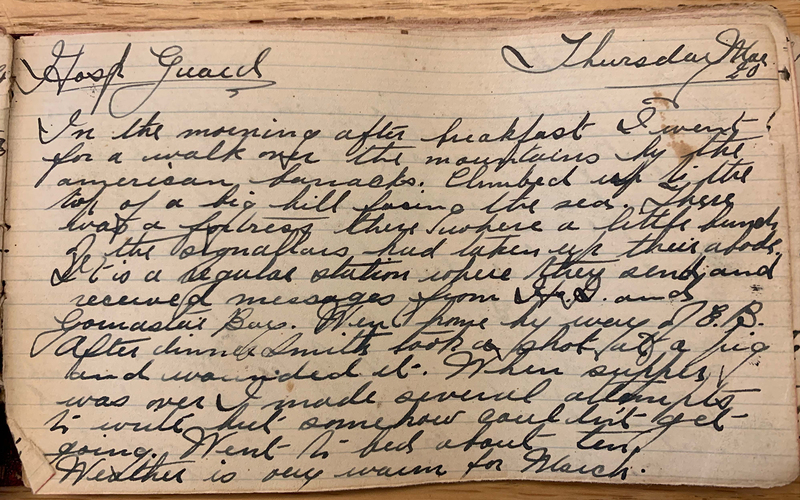 Hosp Guard Thursday Mar 20
In the morning after breakfast I went
for a walk over the mountains by the
american barracks. Climbed up to the
top of a big hill facing the sea. There
was a fortress there where a little bunch
of the signallars had taken up their abode.
It is a regular station where they send and
received messages from H.Q. and
Bay. Went home by way of E.B.
After dinner Smith took a shot at a pig
and wounded it. When supper
was over I made several attempts
to write but somehow couldn't get
going. Went to bed about ten.
Weather is very warm for March.